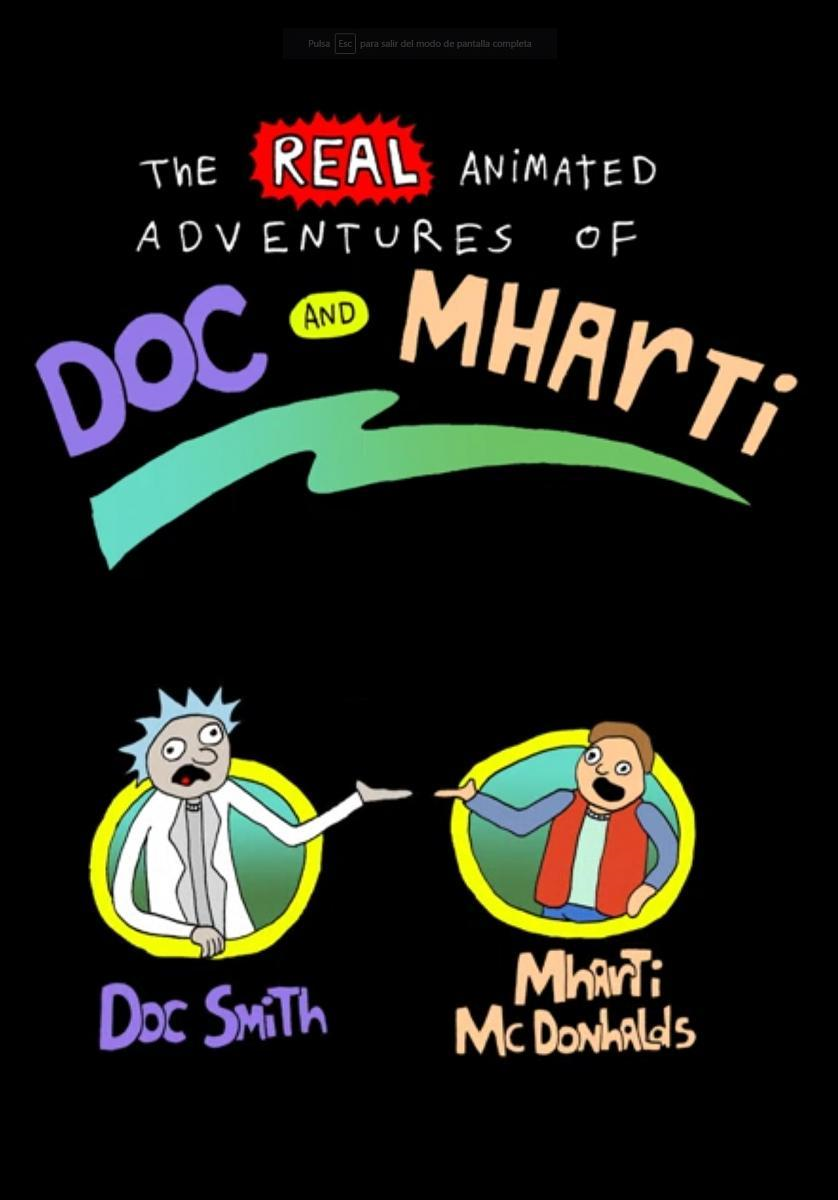 Pulsa Esc para salir del modo de pantalla completa
The REAL ANiMATED
ADVENTURES OF
DOC AND MHArTi
Doc SmiTh
MhArTi
Mc DonhaLds